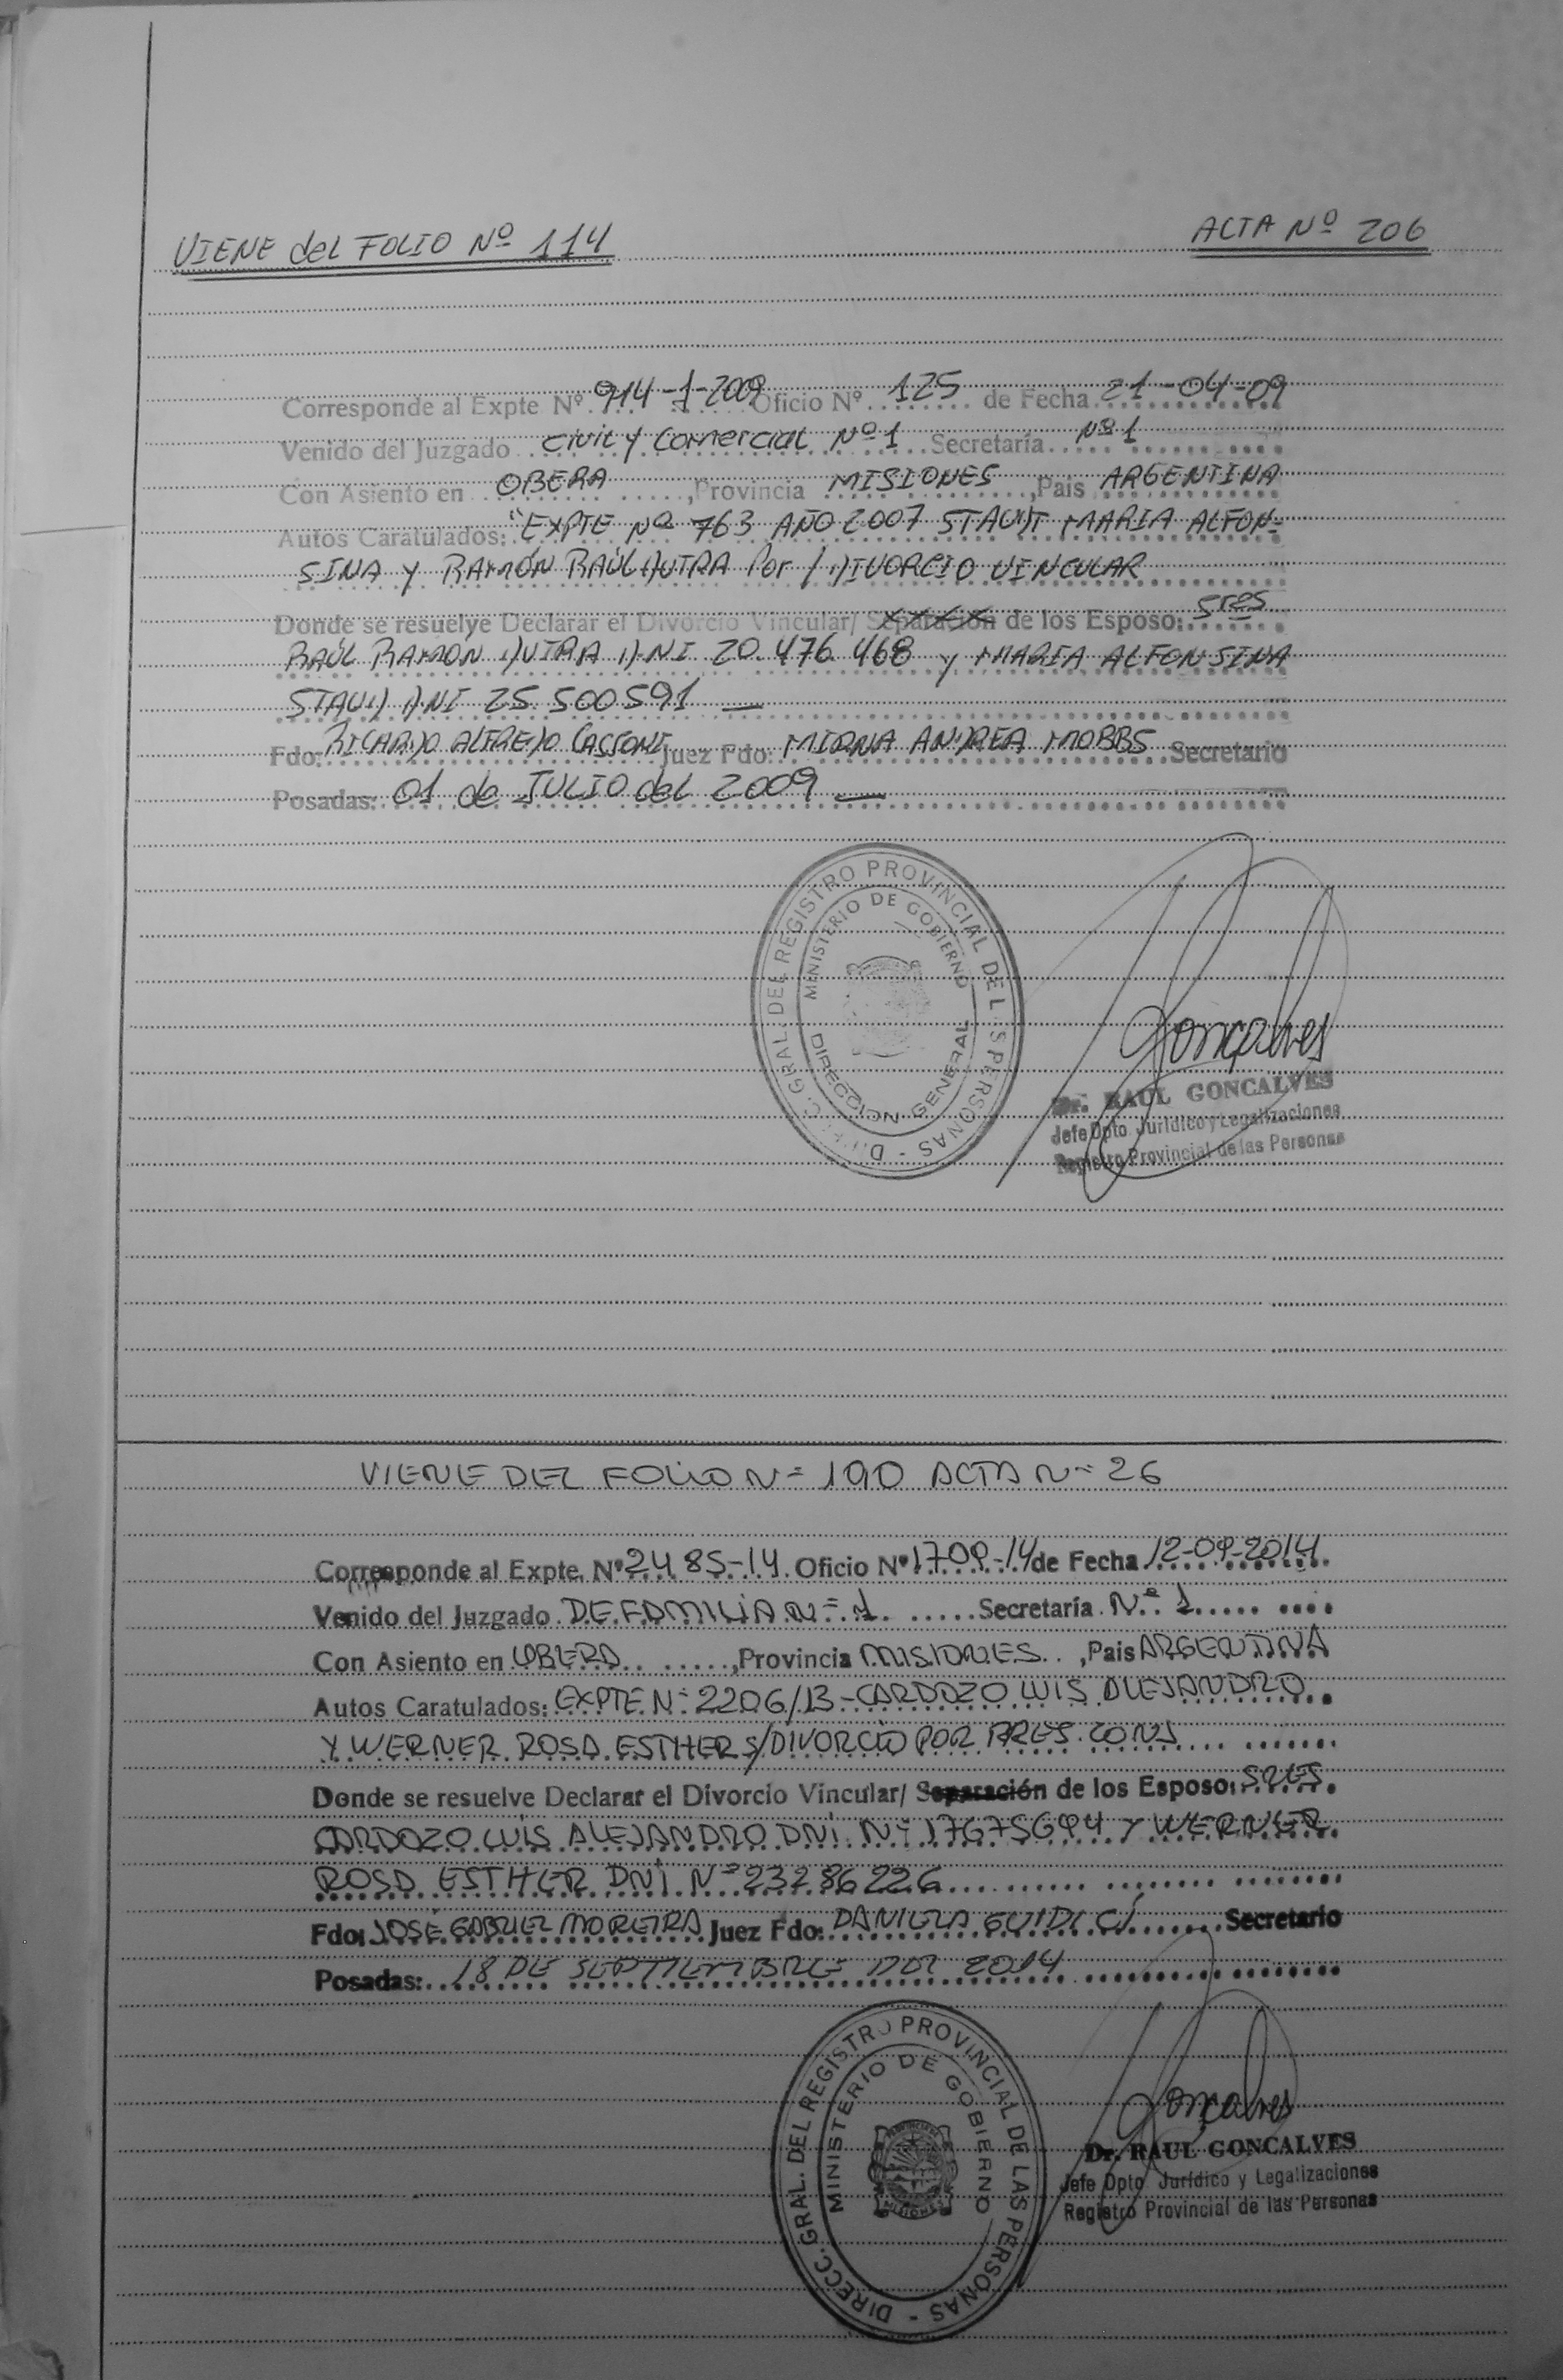 VIENE del FOLIO Nº 114
ACTA Nº 206
Corresponde al Expte Nº 914-1-2009 Oficio Nº 125 de Fecha 21-04-09
Venido del Juzgado Civil y Comercial Nº 1 Secretaría Nº 1
Con Asiento en OBERA, Provincia MISIONES, Pais ARGENTINA
Autos Caratulados: "EXPTE Nº 763 AÑO 2007 MARIA ALFON-
SINA Y RAMÓN RAÚL DUTRA Por / DIVORCIO VINCULAR
Donde se resuelve Declarar el Divorcio Vincular/ Separación de los Esposo: Sres
RAÚL RAMON DUTRA DNI 20.476.468 y MARIA ALFONSINA
STAUD DNI 25.500591 —
Fdo: RICARDO ALFREDO CASSONI Juez Fdo: MIRNA ANDREA MOBBS Secretario
Posadas: 01 de JULIO del 2009 —
DIREC. GRAL. DEL REGISTRO PROVINCIAL DE L S PERSONAS -
MINISTERIO DE GOBIERNO
DIRECCION GENERAL
Gonçalves
Dr. RAUL GONCALVES
Jefe Dpto. Jurídico y Legalizaciones
Registro Provincial de las Personas
VIENE DEL FOLIO N= 190 ACTA N= 26
Corresponde al Expte. Nº 2485-14. Oficio Nº 1709-14 de Fecha 12-09-2014
Venido del Juzgado DE FAMILIA N= 1 Secretaría Nº 1
Con Asiento en OBERA, Provincia MISIONES, Pais ARGENTINA
Autos Caratulados: EXPTE N= 2206/13-CARDOZO LUIS ALEJANDRO
Y WERNER ROSA ESTHER S/DIVORCIO POR PRES. CONJ
Donde se resuelve Declarar el Divorcio Vincular/ Separación de los Esposo: SRES
CARDOZO LUIS ALEJANDRO DNI N= 17675694 Y WERNER
ROSA ESTHER DNI Nº 23286226
Fdo: JOSÉ GABRIEL MOREIRA Juez Fdo: DANIELA GUIDICI Secretario
Posadas: 18 DE SEPTIEMBRE DEL 2014
DIRECC. GRAL. DEL REGISTRO PROVINCIAL DE LAS PERSONAS -
MINISTERIO DE GOBIERNO
MISIONES
Gonçalves
Dr. RAUL GONCALVES
Jefe Dpto. Jurídico y Legalizaciones
Registro Provincial de las Personas